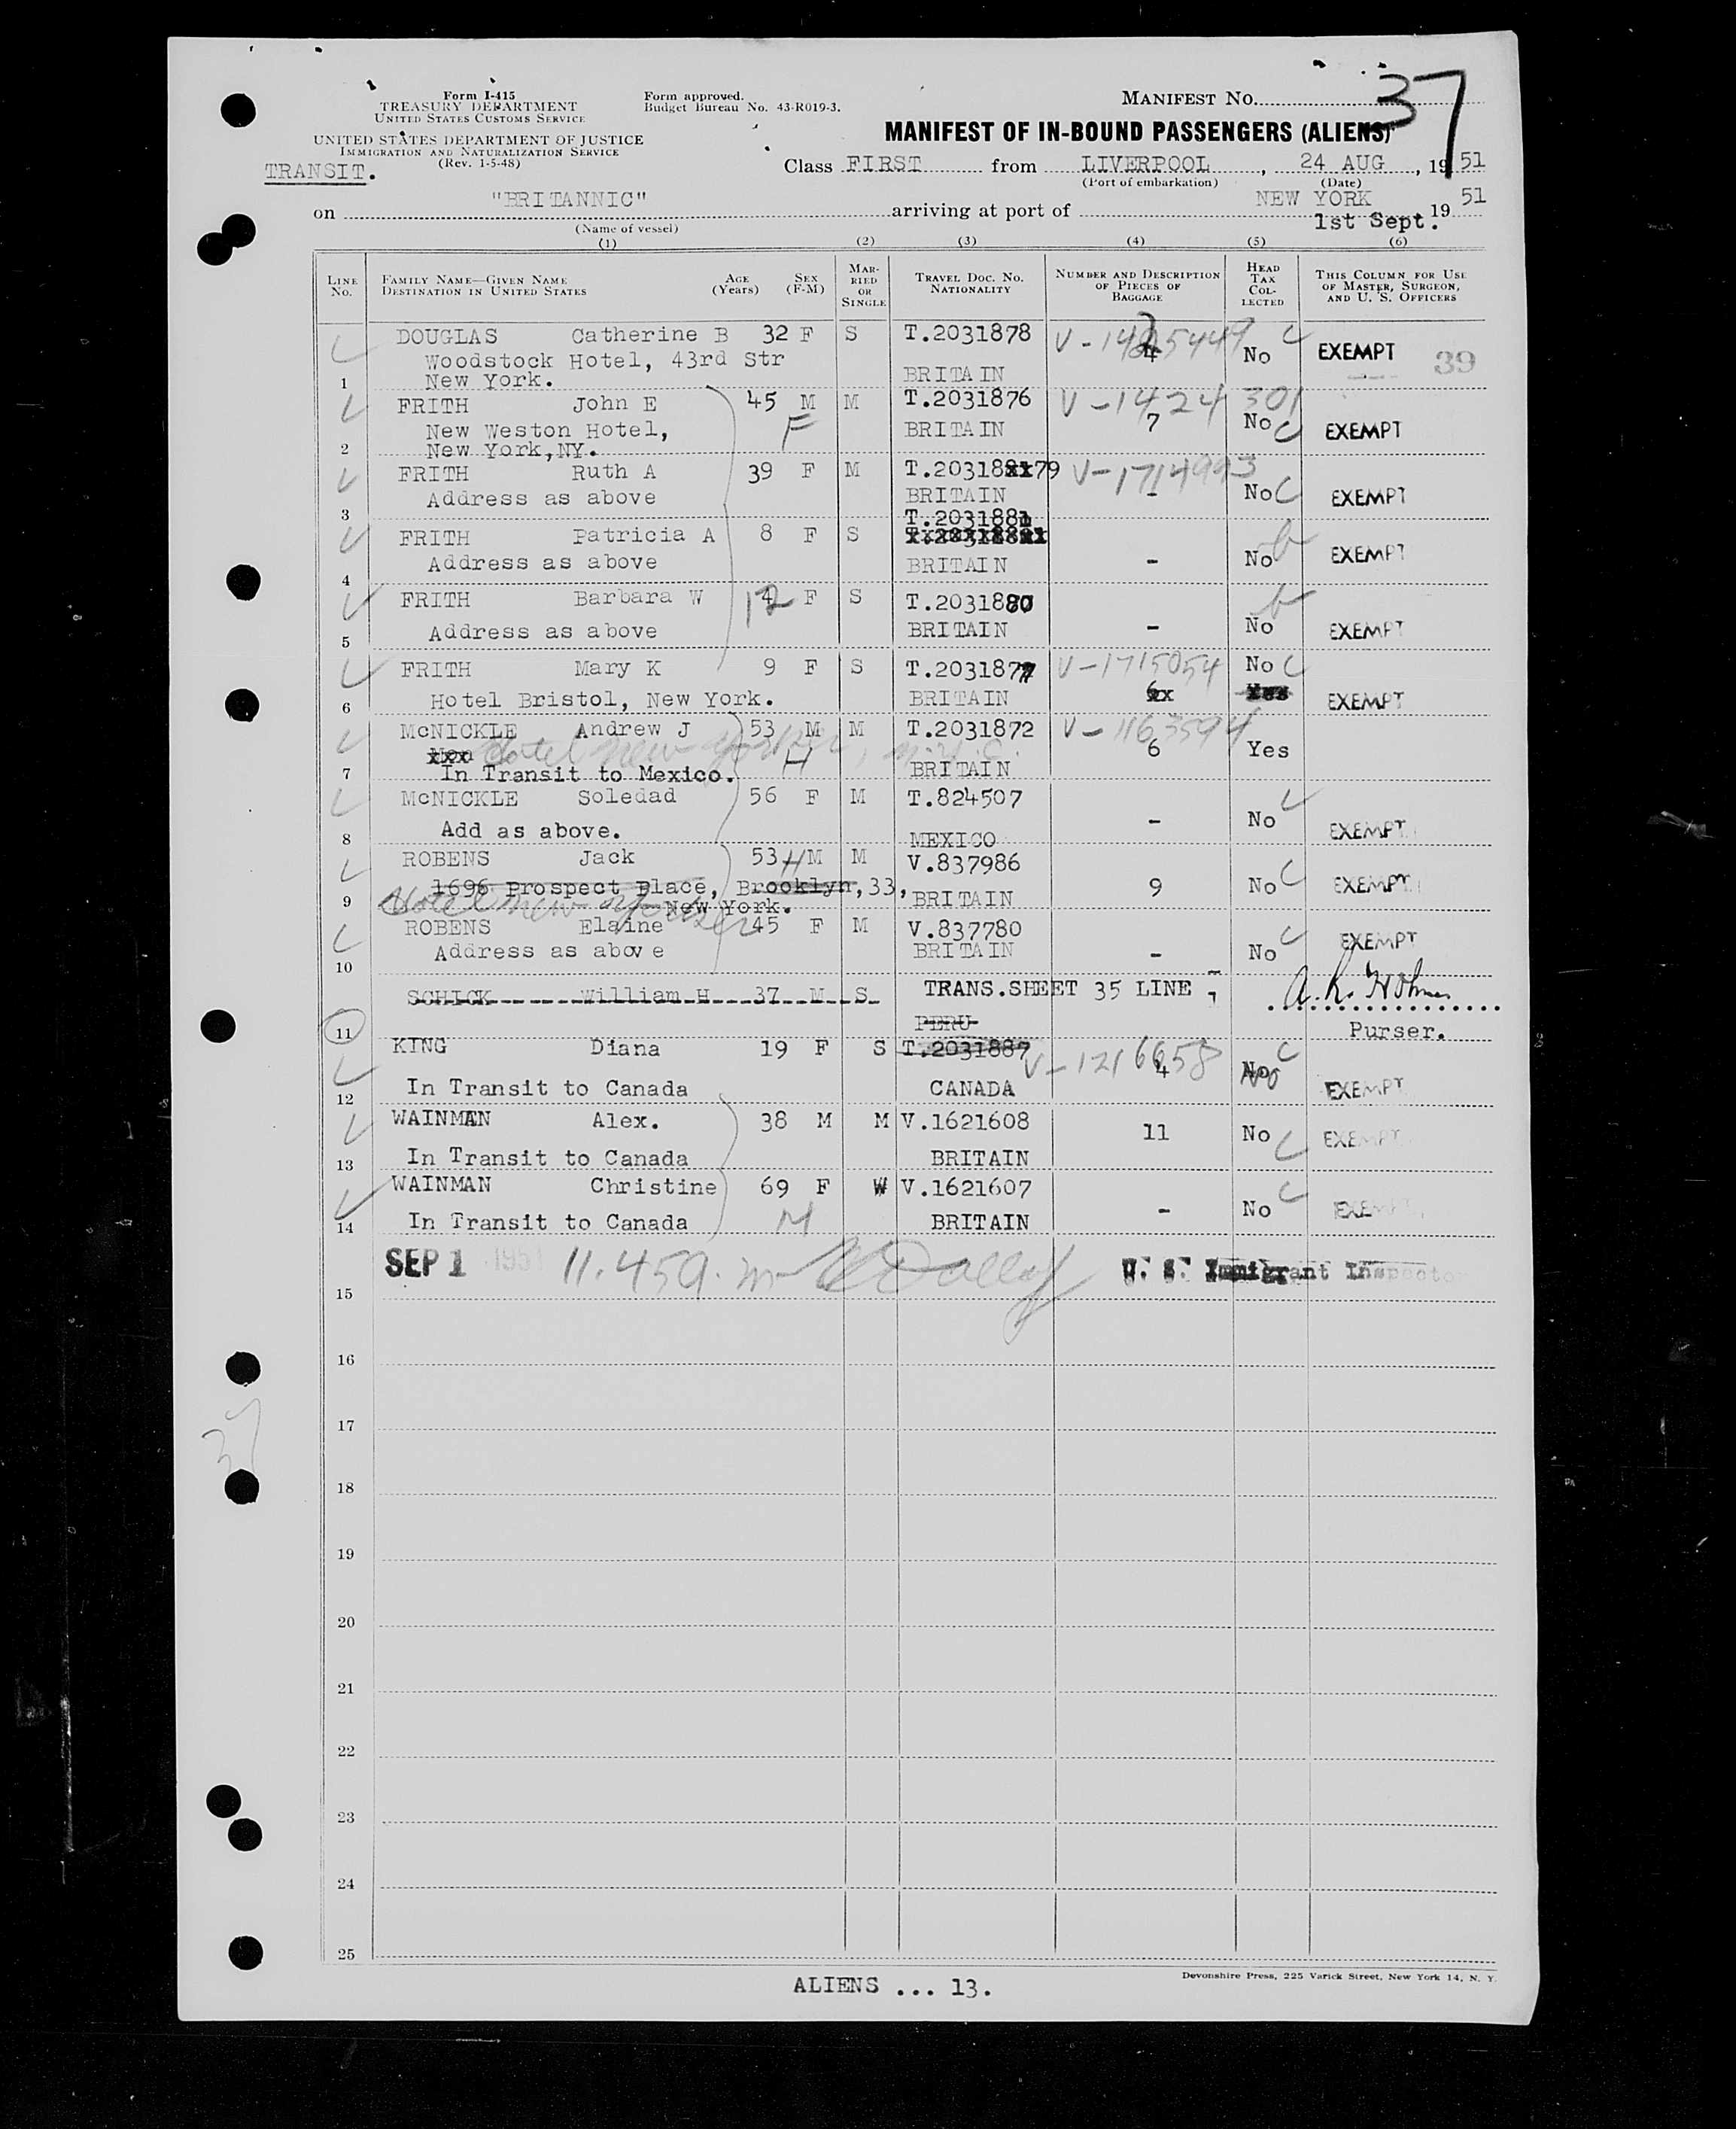 37
Form I-415
TREASURY DEPARTMENT
UNITED STATES CUSTOMS SERVICE
UNITED STATES DEPARTMENT OF JUSTICE
IMMIGRATION AND NATURALIZATION SERVICE
(Rev. 1-5-48)
TRANSIT.
Form approved.
Budget Bureau No. 43-R019-3.
MANIFEST No.
MANIFEST OF IN-BOUND PASSENGERS (ALIENS)
Class FIRST from LIVERPOOL, 24 AUG, 1951
(Port of embarkation) (Date)
on "BRITANNIC" arriving at port of NEW YORK 1st Sept. 1951
(Name of vessel)
(1) (2) (3) (4) (5) (6)
LINE No. FAMILY NAME—GIVEN NAME DESTINATION IN UNITED STATES AGE (Years) SEX (F-M) MARRIED OR SINGLE TRAVEL DOC. NO. NATIONALITY NUMBER AND DESCRIPTION OF PIECES OF BAGGAGE HEAD TAX COLLECTED THIS COLUMN FOR USE OF MASTER, SURGEON, AND U. S. OFFICERS
DOUGLAS Catherine B 32 F S T.2031878 4 No EXEMPT 39
Woodstock Hotel, 43rd Str
1 New York. BRITAIN
FRITH John E 45 M M T.2031876 V-1424301
New Weston Hotel, F BRITAIN 7 No EXEMPT
2 New York,NY.
FRITH Ruth A 39 F M T.20318xx79 V-1714993
Address as above BRITAIN - No EXEMPT
3
T.2031881
FRITH Patricia A 8 F S
Address as above BRITAIN - No EXEMPT
4
FRITH Barbara W 12 F S T.2031880
Address as above BRITAIN - No EXEMPT
5
FRITH Mary K 9 F S T.2031877 V-1715054 No
6 Hotel Bristol, New York. BRITAIN 6x Yes EXEMPT
McNICKLE Andrew J 53 M M T.2031872 V-1163594
xxx Hotel New Yorker, N.Y.C. H 6 Yes
7 In Transit to Mexico. BRITAIN
McNICKLE Soledad 56 F M T.824507
Add as above. - No EXEMPT
8 MEXICO
ROBENS Jack 53 H M M V.837986
1696 Prospect Place, Brooklyn,33, BRITAIN 9 No EXEMPT
9 Hotel New Yorker New York.
ROBENS Elaine 45 F M V.837780
Address as above BRITAIN - No EXEMPT
10
SCHICK William H 37 M S TRANS.SHEET 35 LINE 7
11 PERU Purser.
KING Diana 19 F S T.2031887 V-1216658
In Transit to Canada CANADA 4 No EXEMPT
12
WAINMAN Alex. 38 M M V.1621608 11 No EXEMPT
13 In Transit to Canada BRITAIN
WAINMAN Christine 69 F W V.1621607 - No EXEMPT
14 In Transit to Canada M BRITAIN
SEP 1 1951 11.459. U. S. Immigrant Inspector
15
16
17
37
18
19
20
21
22
23
24
25
ALIENS ... 13.
Devonshire Press, 225 Varick Street, New York 14, N. Y.